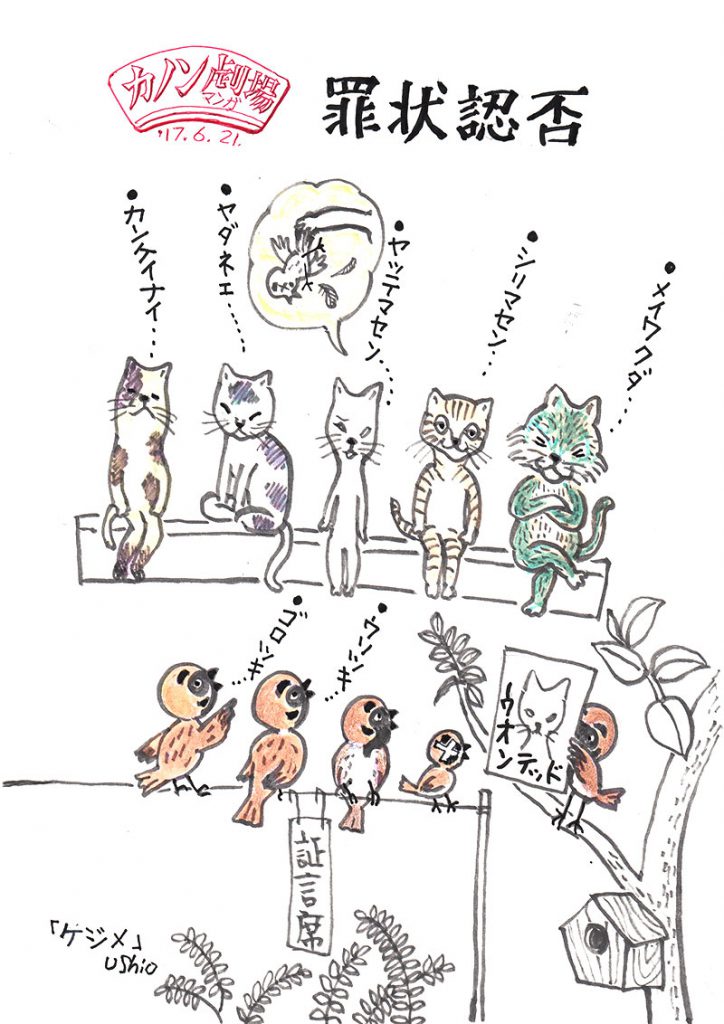 カノン劇場
マンガ
'17.6.21.
罪状認否
・カンケイナイ……
・ヤダネエ……
・ヤッテマセン……
・シリマセン……
・メイワクダ……
・ゴロツキ……
・ウソツキ……
ウオンテッド
証言席
「ケジメ」
UShio